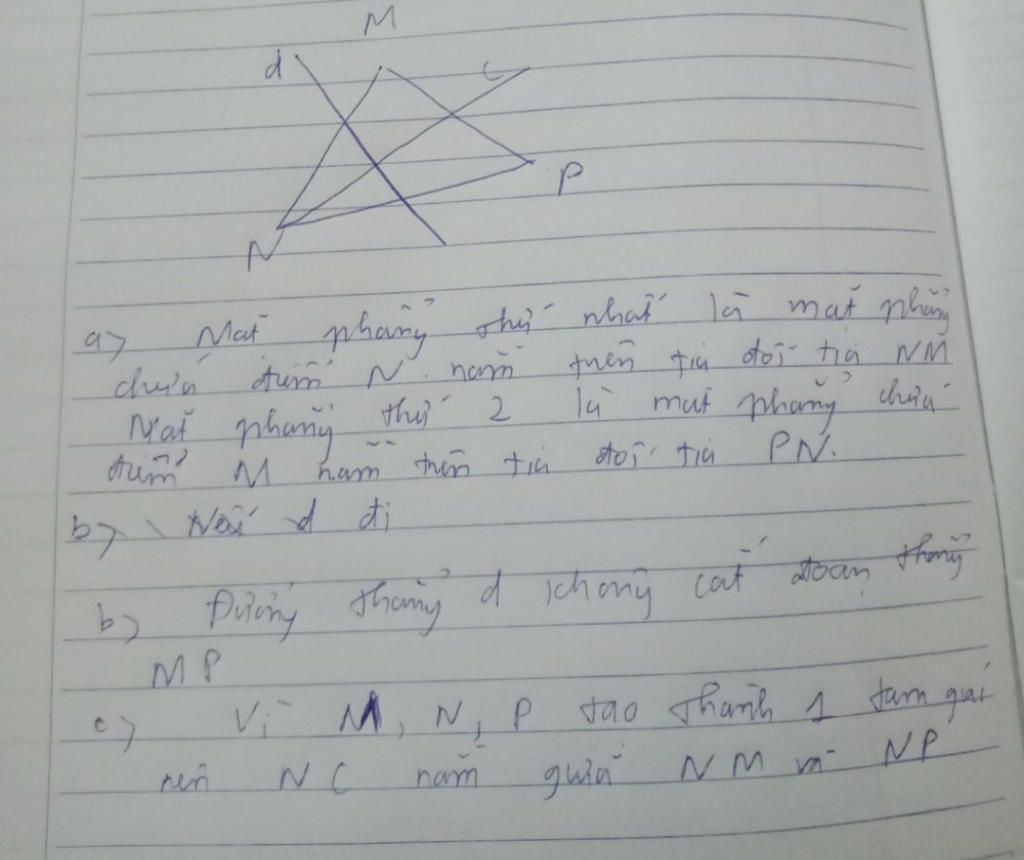 M
d
C
P
N
a) Mặt phẳng thứ nhất là mặt phẳng
chứa điểm N nằm trên tia đối tia NM
Mặt phẳng thứ 2 là mặt phẳng chứa
điểm M nằm trên tia đối tia PN.
b) Nếu d đi
b) Đường thẳng d không cắt đoạn thẳng
MP
c) Vì M, N, P tạo thành 1 tam giác
nên NC nằm giữa NM và NP